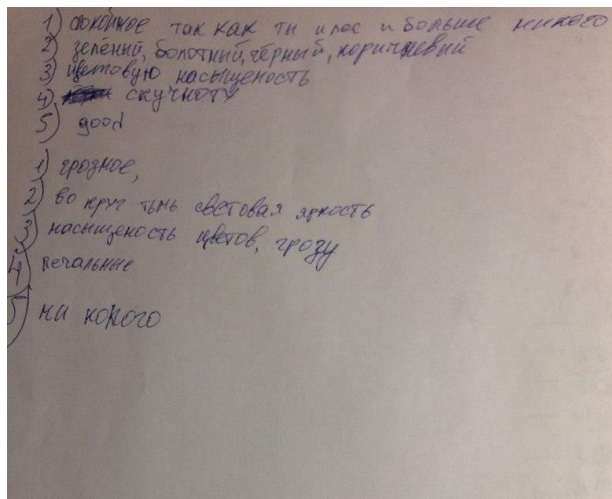 1) спокойное так как ты и лес и больше никого
2) зелёный, болотный, чёрный, коричневый
3) цветовую насыщеность
4) скучноту
5) good
1) грозное,
2) во круг тьмь световая яркость
3) насыщеность цветов, грозу
4) печальные
5) ни кокого